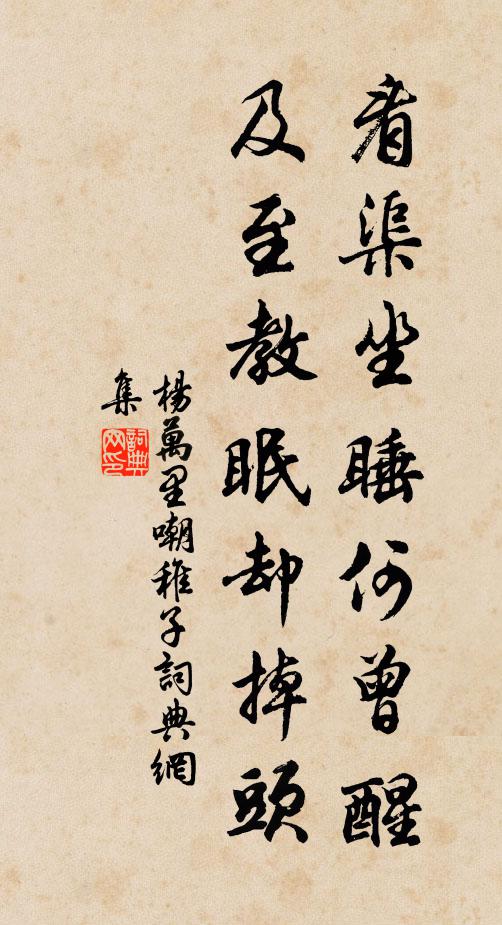 看渠坐睡何曾醒
及至教眠却掉頭
楊萬里嘲稚子詞典網
集
詞典
网印